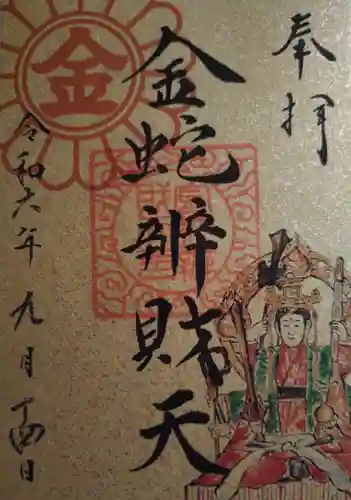 奉拝
金
金蛇辨財天
令和六年九月十四日